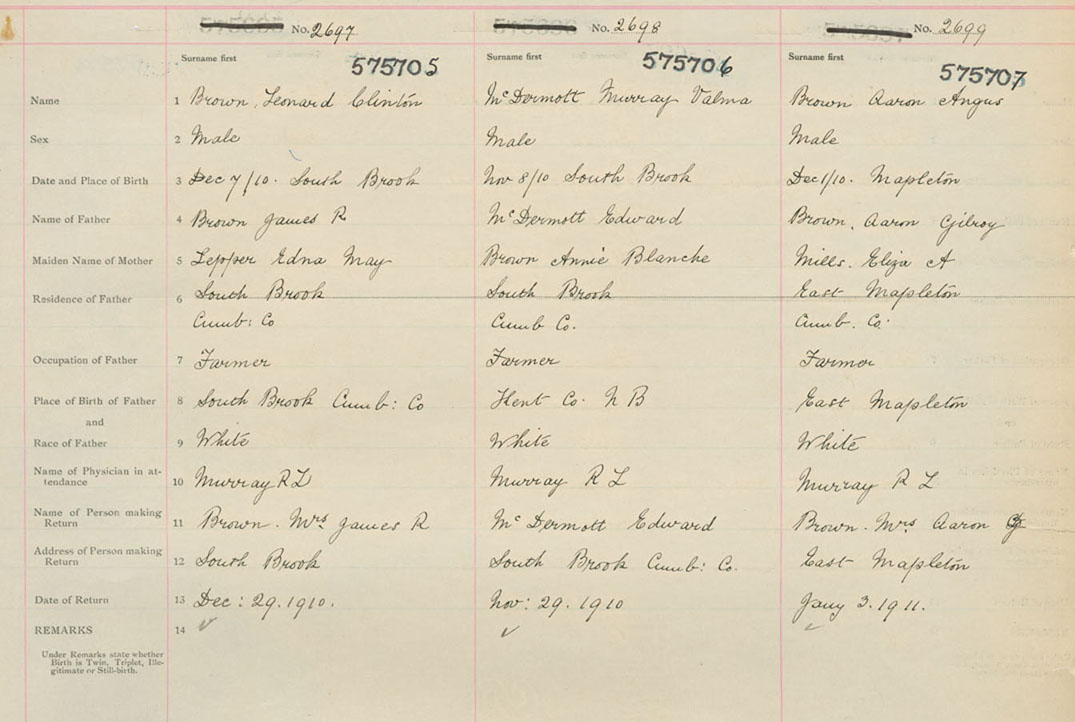 No. 2697 No. 2698 No. 2699
Surname first Surname first Surname first
575705 575706 575707
Name 1 Brown, Leonard Clinton McDermott Murray Valma Brown Aaron Angus
Sex 2 Male Male Male
Date and Place of Birth 3 Dec 7/10. South Brook Nov 8/10 South Brook Dec 1/10. Mapleton
Name of Father 4 Brown James R McDermott Edward Brown, Aaron Gilroy
Maiden Name of Mother 5 Lepper Edna May Brown Annie Blanche Mills. Eliza A
Residence of Father 6 South Brook South Brook East Mapleton
Cumb: Co Cumb Co. Cumb. Co.
Occupation of Father 7 Farmer Farmer Farmer
Place of Birth of Father 8 South Brook Cumb: Co Kent Co. N B East Mapleton
and
Race of Father 9 White White White
Name of Physician in at-
tendance 10 Murray R L Murray R L Murray R L
Name of Person making
Return 11 Brown. Mrs James R McDermott Edward Brown. Mrs Aaron G
Address of Person making
Return 12 South Brook South Brook Cumb: Co. East Mapleton
Date of Return 13 Dec: 29. 1910. Nov: 29. 1910 Jany 3. 1911.
REMARKS 14
Under Remarks state whether
Birth is Twin, Triplet, Ille-
gitimate or Still-birth.